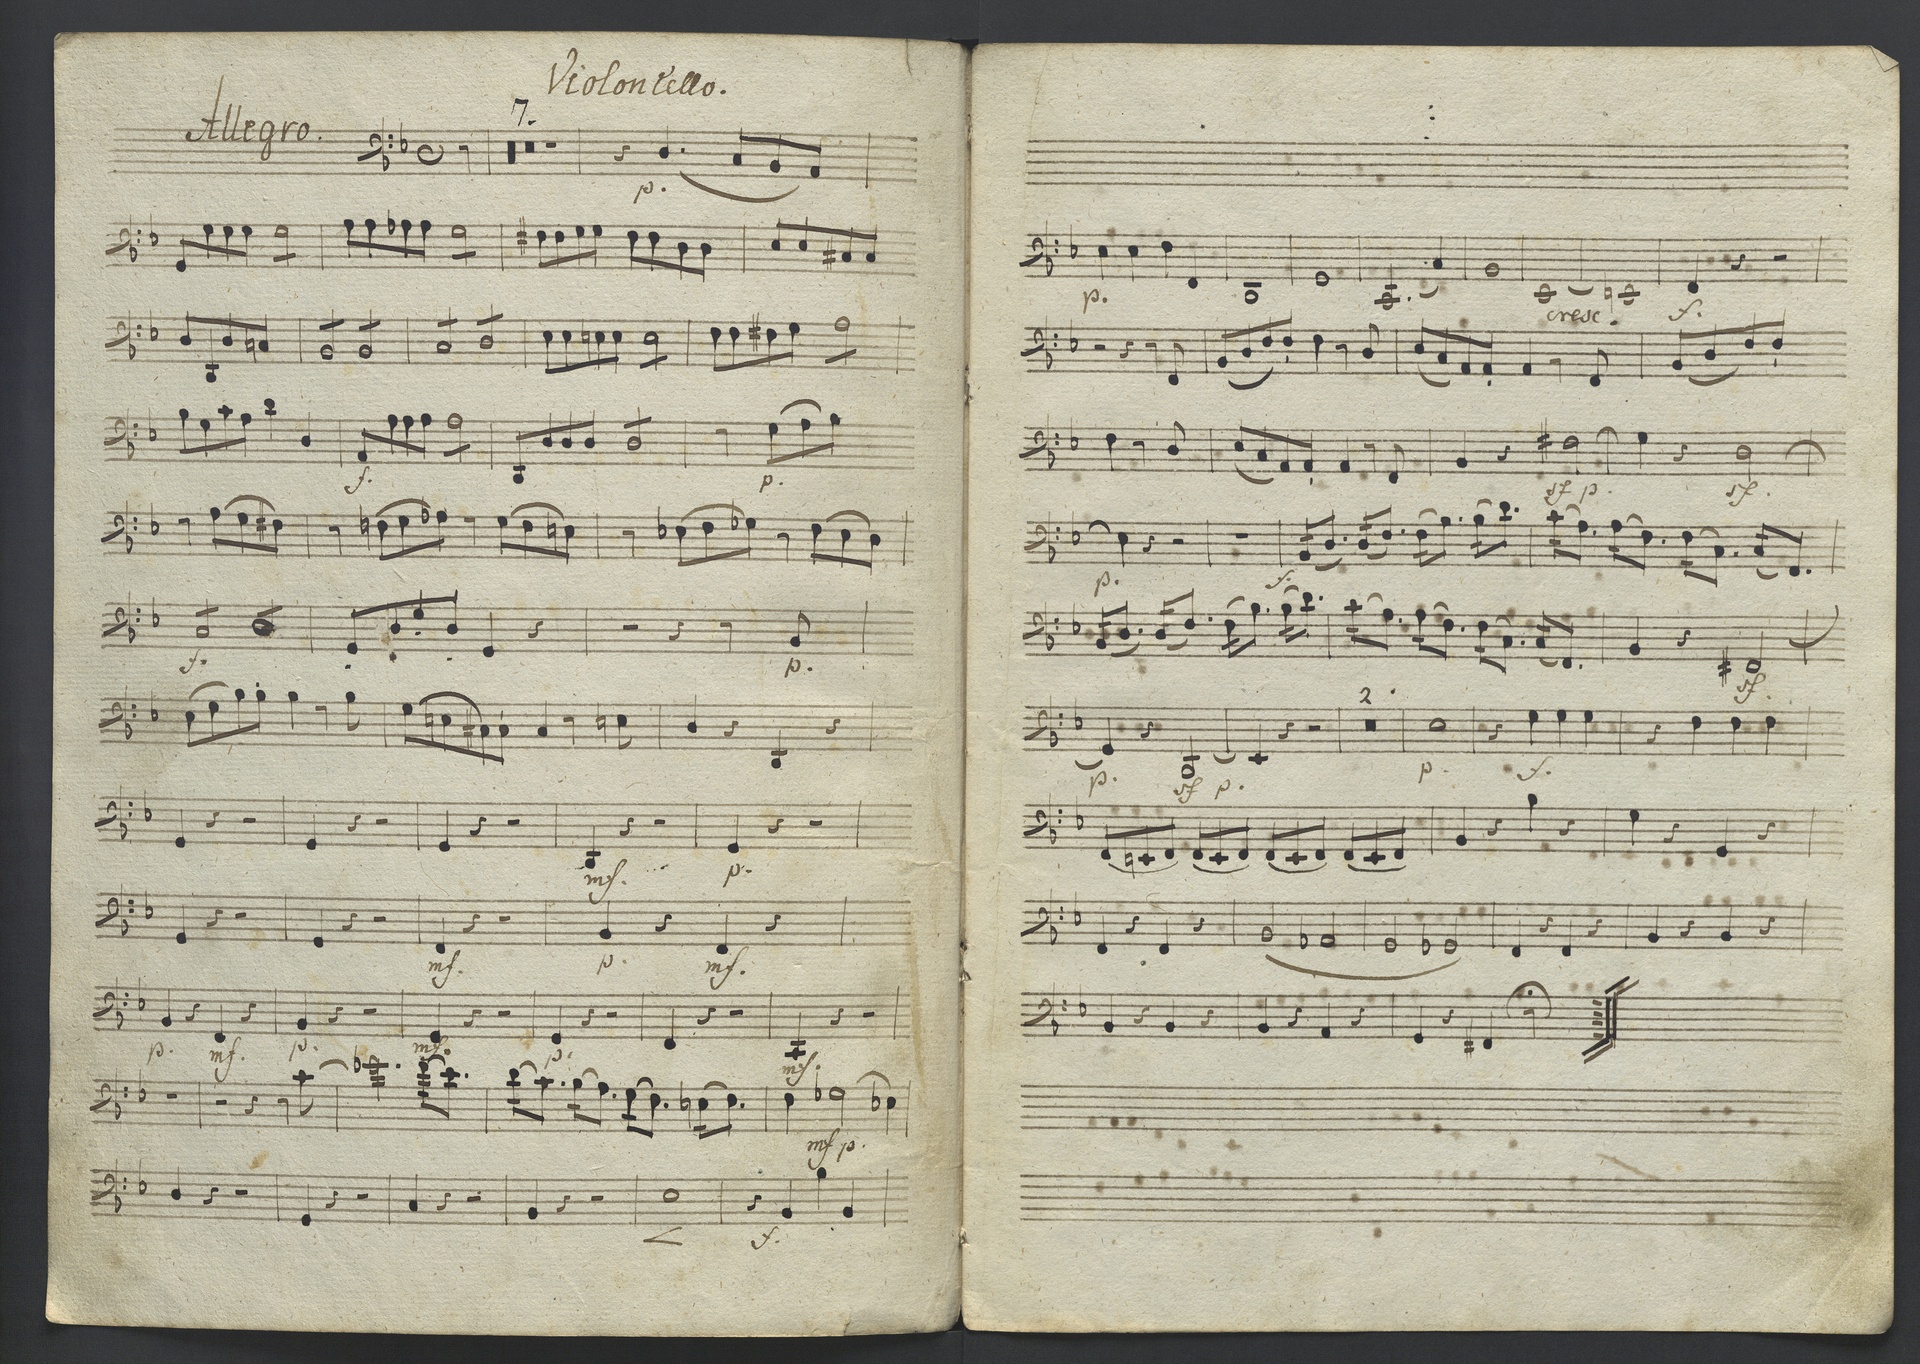 Violoncello.
Allegro.
7.
p.
f.
p.
f.
p.
mf.
p.
mf.
p.
mf.
p.
mf.
p.
mf.
p.
mf.
mf p.
f.
p.
cresc.
f.
sf p.
sf.
p.
f.
sf.
2
p.
sf p.
p.
f.